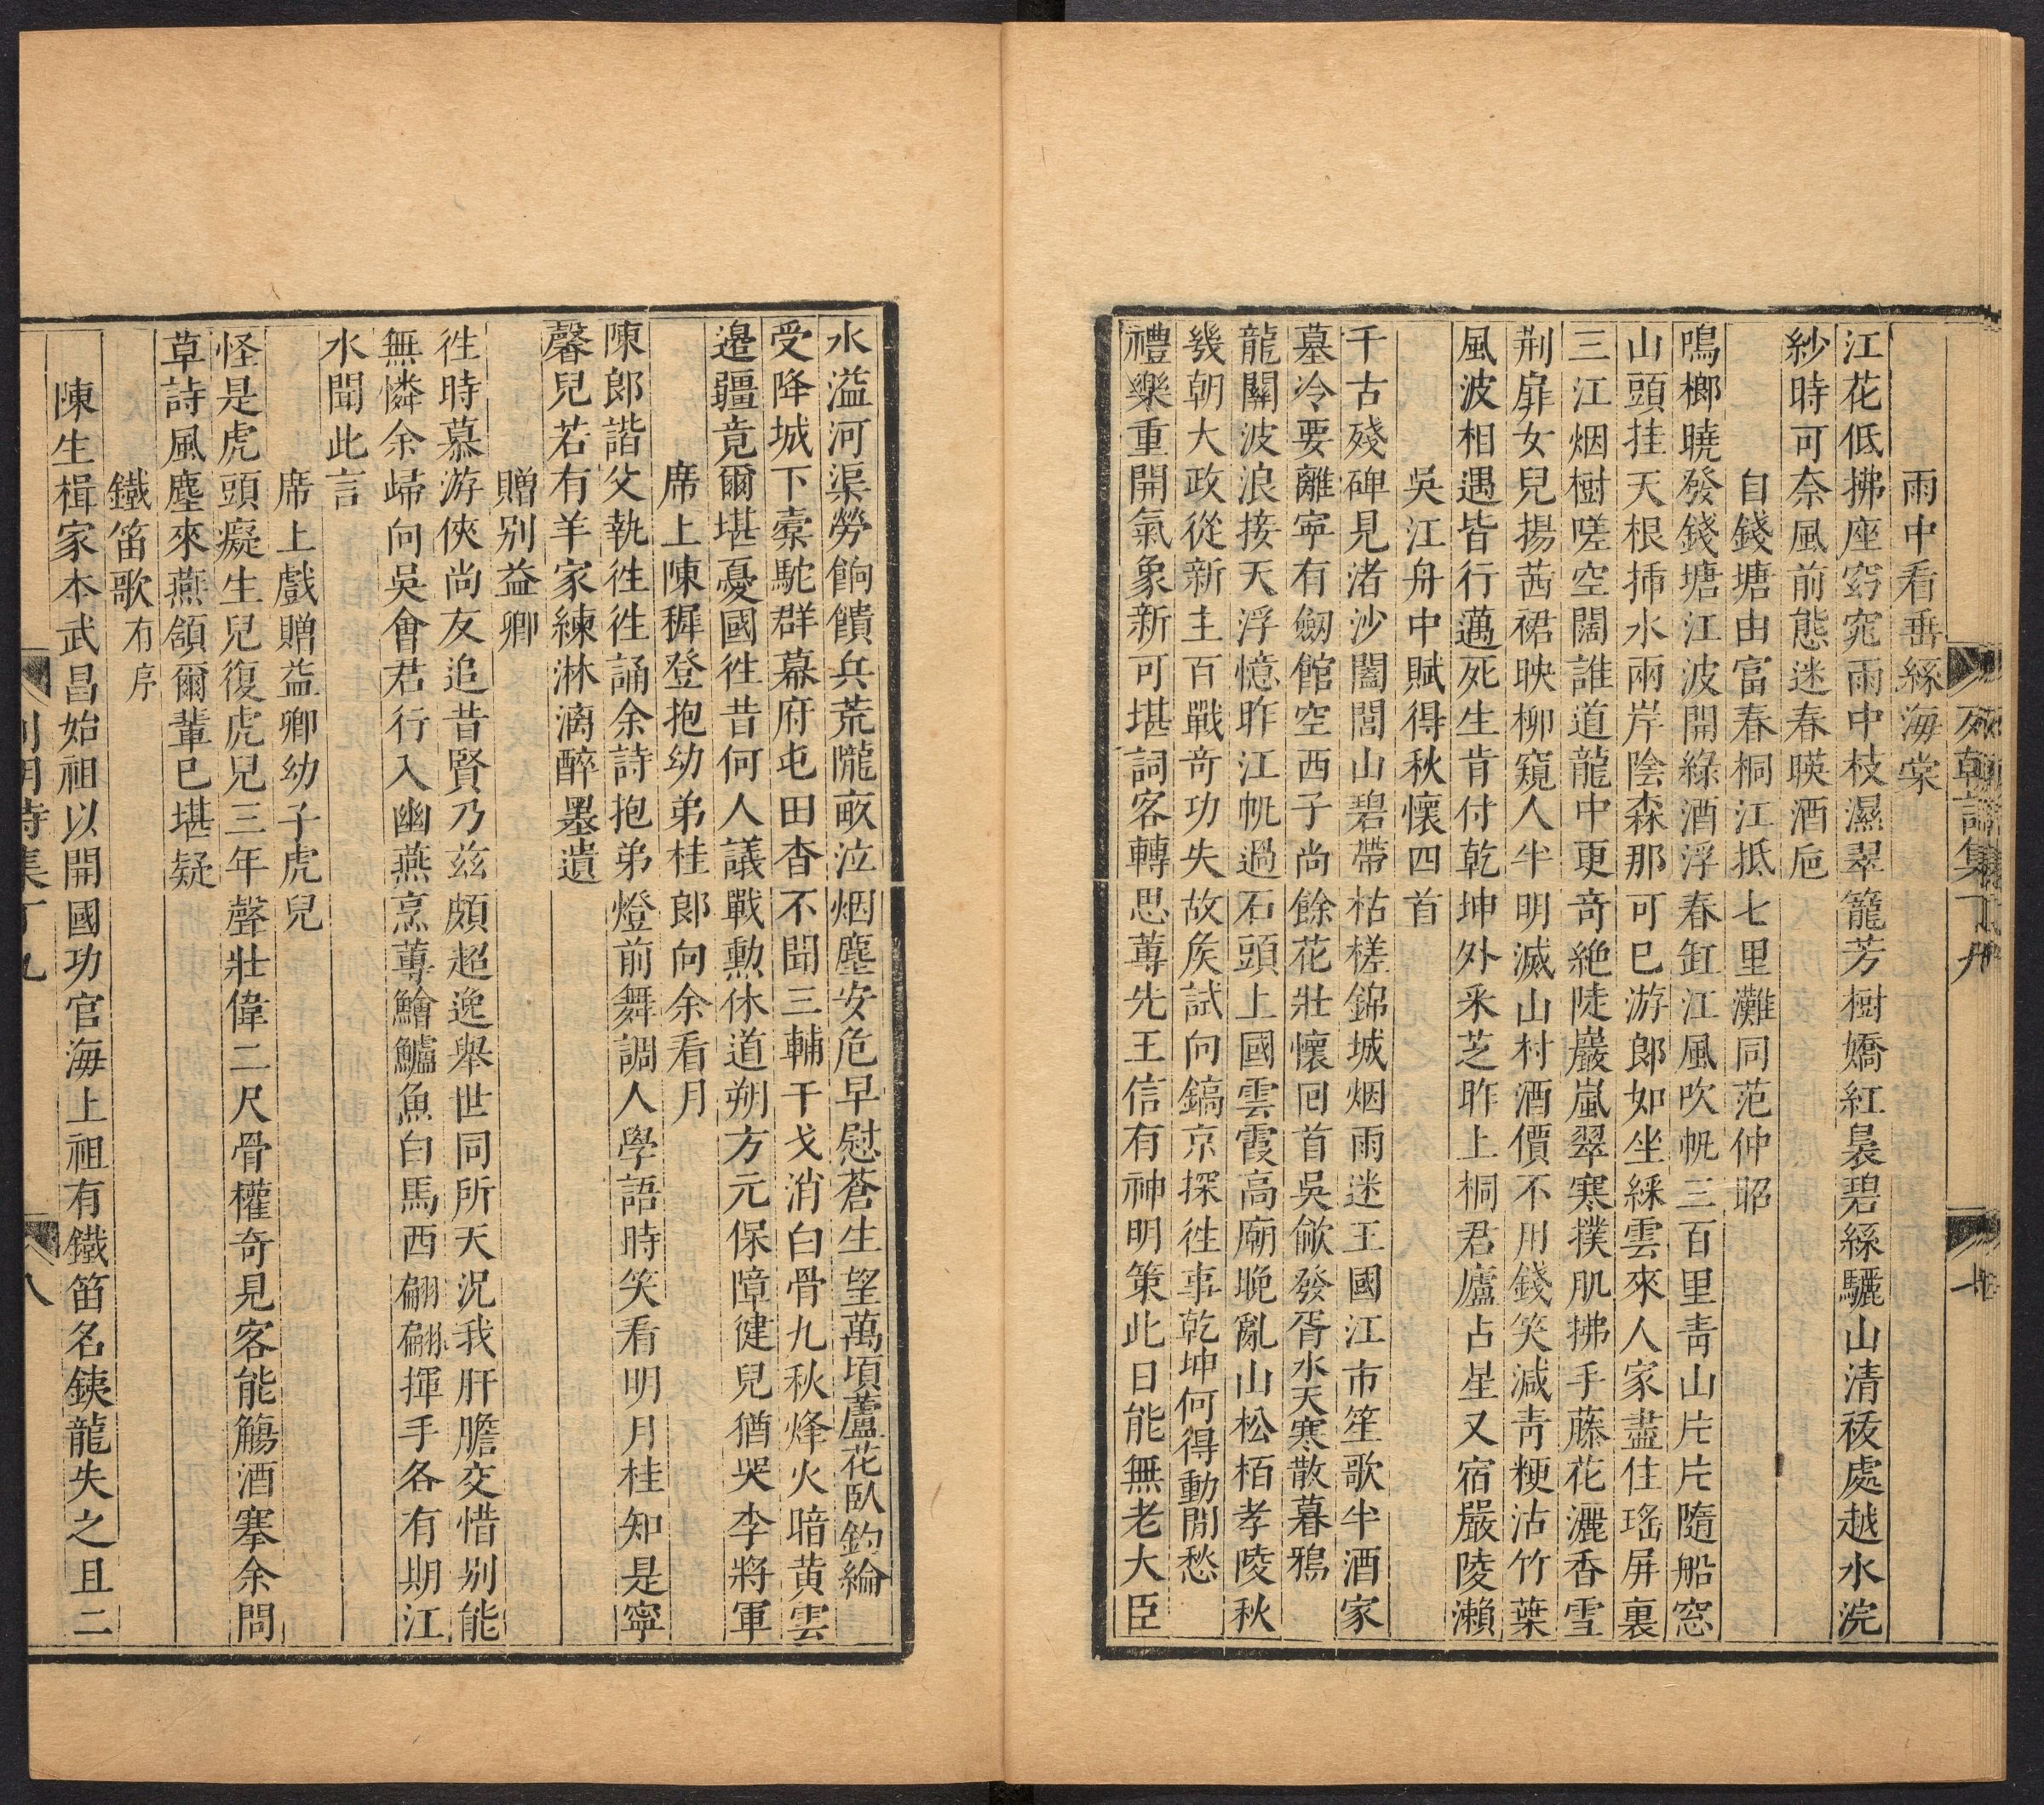 雨中看垂絲海棠
江花低拂座窈窕雨中枝濕翠籠芳樹嬌紅裊碧絲驪山清祓處越水浣
紗時可奈風前態迷春暎酒巵
自錢塘由富春桐江抵七里灘同范仲昭
鳴榔曉發錢塘江波開綠酒浮春缸江風吹帆三百里靑山片片隨船窓
山頭挂天根揷水兩岸陰森那可已游郞如坐綵雲來人家盡住瑤屏裏
三江烟樹嗟空闊誰道龍中更竒絶陡巖嵐翠寒撲肌拂手藤花灑香雪
荆扉女兒揚茜裙映柳窺人半明滅山村酒價不用錢笑減靑粳沽竹葉
風波相遇皆行邁死生肯付乾坤外采芝昨上桐君廬占星又宿嚴陵瀨
吳江舟中賦得秋懷四首
千古殘碑見渚沙闔閭山碧帶枯槎錦城烟雨迷王國江市笙歌半酒家
墓冷要離寧有劒館空西子尚餘花壯懷回首吳歈發胥水天寒散暮鴉
龍關波浪接天浮憶昨江帆過石頭上國雲霞高廟晚亂山松栢孝陵秋
幾朝大政從新主百戰竒功失故矦試向鎬京探徃事乾坤何得動閒愁
禮樂重開氣象新可堪詞客轉思蓴先王信有神明策此日能無老大臣
水溢河渠勞餉饋兵荒隴畝泣烟塵安危早慰蒼生望萬頃蘆花臥釣綸
受降城下橐駝群幕府屯田杳不聞三輔干戈消白骨九秋烽火暗黄雲
邉疆竟爾堪憂國徃昔何人議戰勲休道朔方元保障健兒猶哭李將軍
席上陳穉登抱幼弟桂郞向余看月
陳郞諧父執徃徃誦余詩抱弟燈前舞調人學語時笑看明月桂知是寧
馨兒若有羊家練淋漓醉墨遺
贈别益卿
徃時慕游俠尚友追昔賢乃兹頗超逸舉世同所天況我肝膽交惜别能
無憐余歸向吳會君行入幽燕烹蓴鱠鱸魚白馬西翩翩揮手各有期江
水聞此言
席上戲贈益卿幼子虎兒
怪是虎頭癡生兒復虎兒三年聲壯偉二尺骨權奇見客能觴酒搴余問
草詩風塵來燕頷爾輩已堪疑
鐵笛歌有序
陳生楫家本武昌始祖以開國功官海上祖有鐵笛名鋏龍失之且二